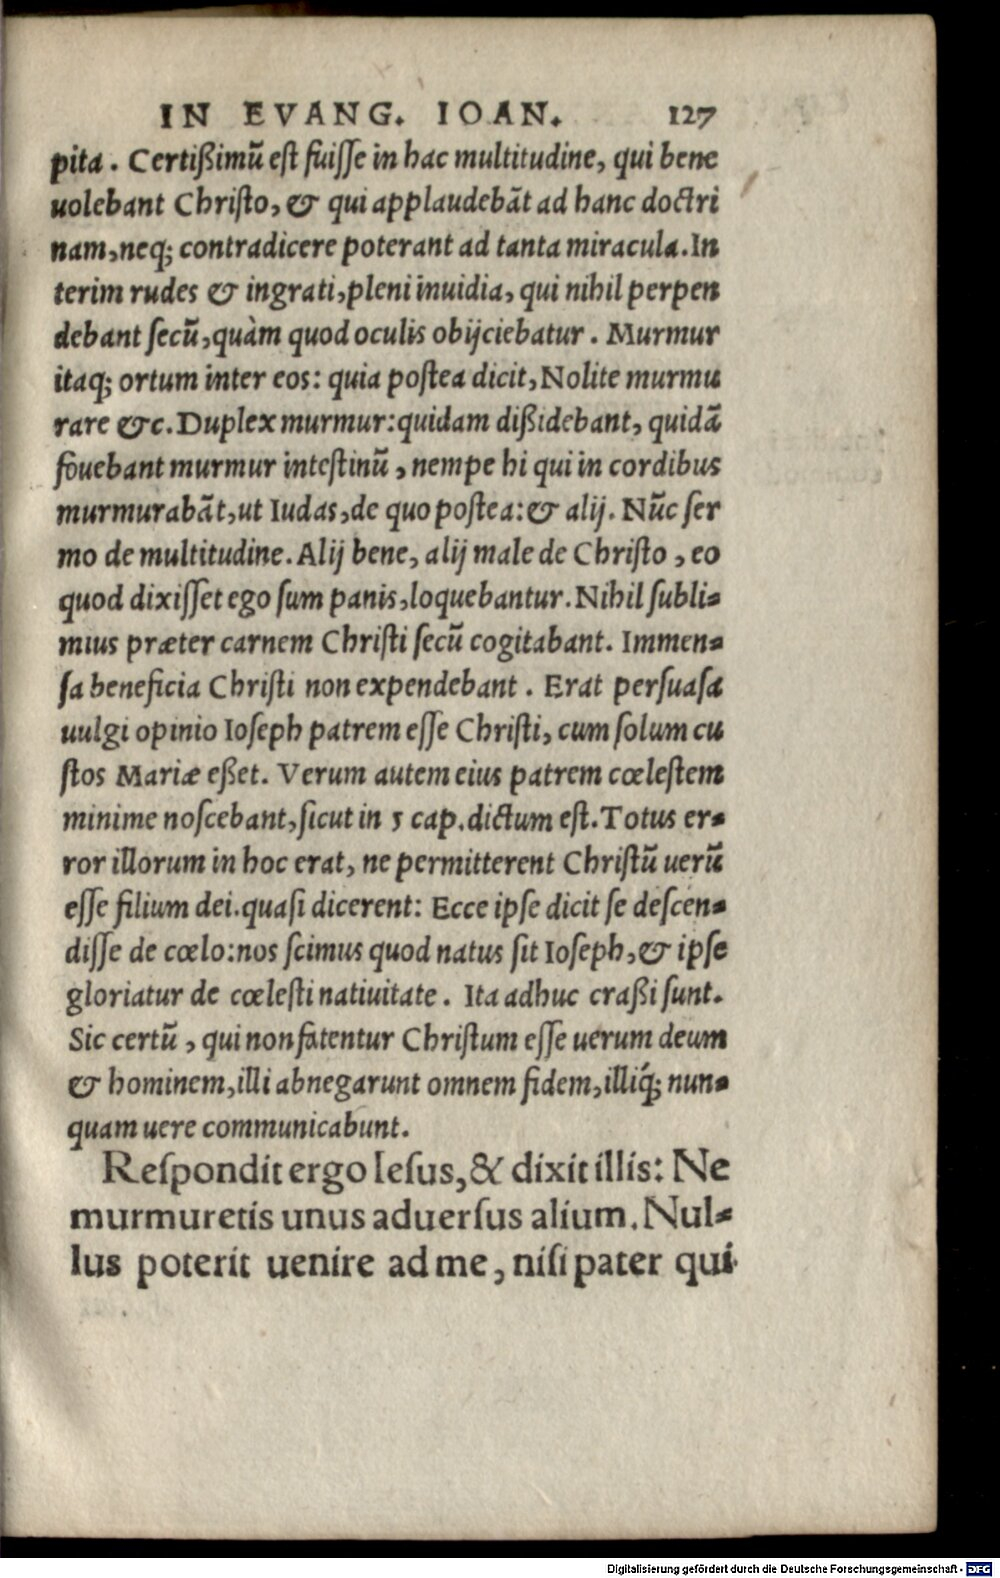 IN EVANG. IOAN. 127
pita. Certißimũ est fuisse in hac multitudine, qui bene
uolebant Christo, & qui applaudebãt ad hanc doctri
nam, neq; contradicere poterant ad tanta miracula. In
terim rudes & ingrati, pleni inuidia, qui nihil perpen
debant secũ, quàm quod oculis obijciebatur. Murmur
itaq; ortum inter eos: quia postea dicit, Nolite murmu
rare &c. Duplex murmur: quidam dißidebant, quidã
fouebant murmur intestinũ, nempe hi qui in cordibus
murmurabãt, ut Iudas, de quo postea: & alij. Nũc ser
mo de multitudine. Alij bene, alij male de Christo, eo
quod dixisset ego sum panis, loquebantur. Nihil subli-
mius præter carnem Christi secũ cogitabant. Immen-
sa beneficia Christi non expendebant. Erat persuasa
uulgi opinio Ioseph patrem esse Christi, cum solum cu
stos Mariæ eßet. Verum autem eius patrem cœlestem
minime noscebant, sicut in 5 cap. dictum est. Totus er-
ror illorum in hoc erat, ne permitterent Christũ uerũ
esse filium dei. quasi dicerent: Ecce ipse dicit se descen-
disse de cœlo: nos scimus quod natus sit Ioseph, & ipse
gloriatur de cœlesti natiuitate. Ita adhuc craßi sunt.
Sic certũ, qui non fatentur Christum esse uerum deum
& hominem, illi abnegarunt omnem fidem, illiq́; nun-
quam uere communicabunt.
Respondit ergo Iesus, & dixit illis: Ne
murmuretis unus aduersus alium. Nul-
lus poterit uenire ad me, nisi pater qui
Digitalisierung gefördert durch die Deutsche Forschungsgemeinschaft - DFG